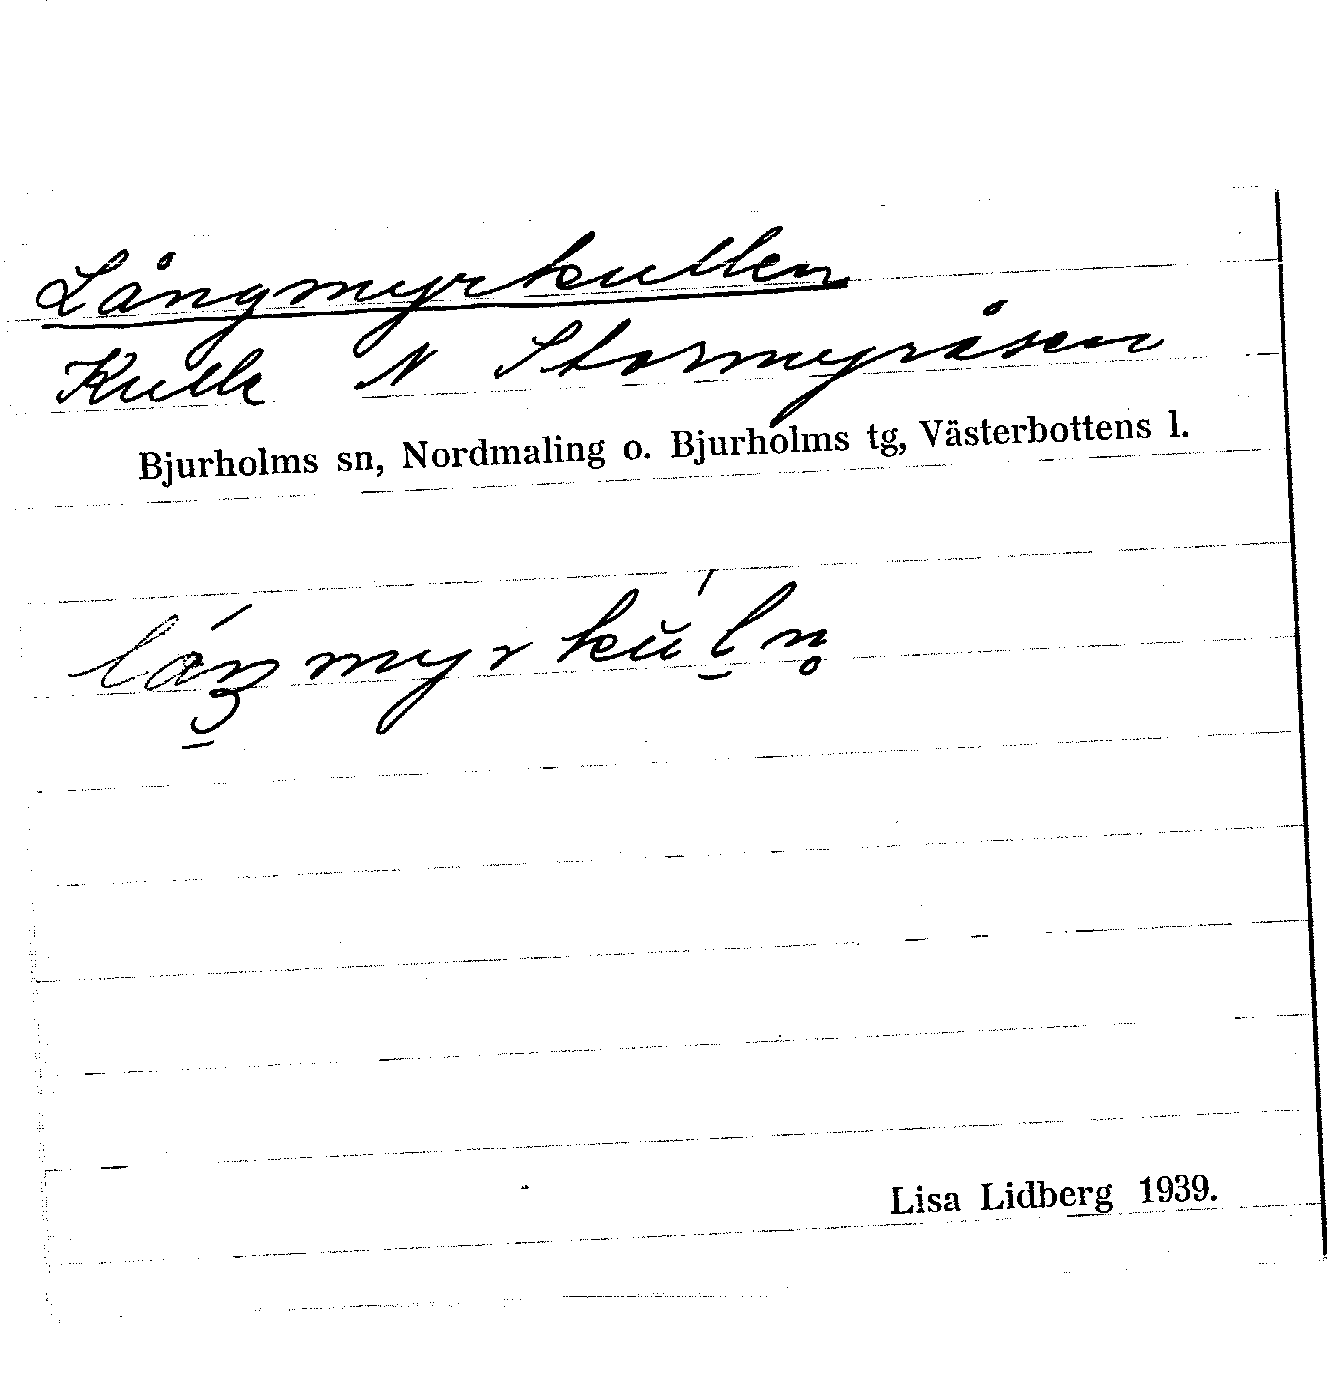 Långmyrkullen
Kulle N Stormyråsen
Bjurholms sn, Nordmaling o. Bjurholms tg, Västerbottens l.
Lisa Lidberg 1939.